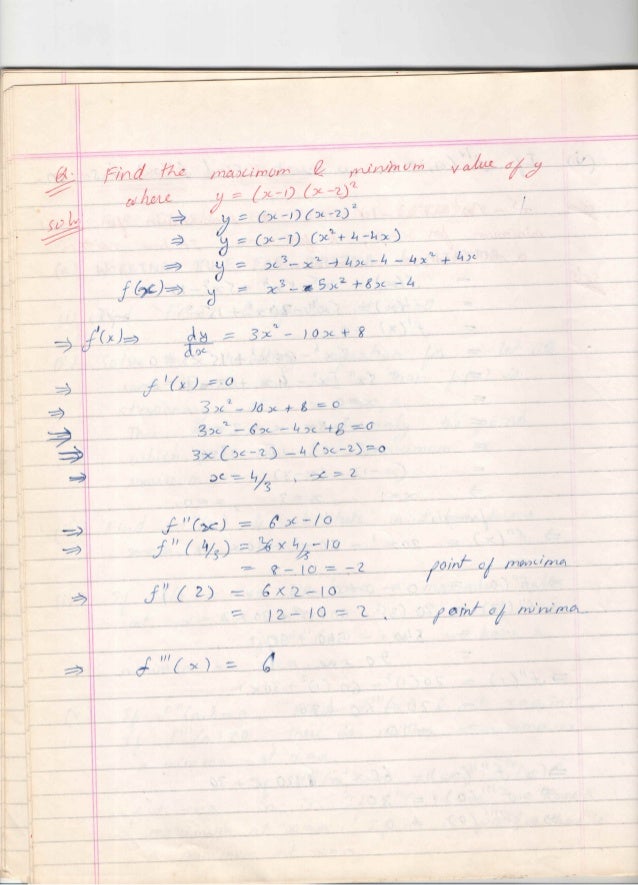 Q. Find the maximum & minimum value of y
where y = (x-1) (x-2)²
Soln ⇒ y = (x-1) (x-2)²
⇒ y = (x-1) (x² + 4 - 4x)
⇒ y = x³ - x² + 4x - 4 - 4x² + 4x
f(x) ⇒ y = x³ - 5x² + 8x - 4
⇒ f'(x) ⇒ dy/dx = 3x² - 10x + 8
⇒ f'(x) = 0
⇒ 3x² - 10x + 8 = 0
⇒ 3x² - 6x - 4x + 8 = 0
⇒ 3x (x-2) - 4 (x-2) = 0
⇒ x = 4/3 , x = 2
⇒ f''(x) = 6x - 10
⇒ f''(4/3) = 6 x 4/3 - 10
= 8 - 10 = -2 point of maxima
⇒ f''(2) = 6 x 2 - 10
= 12 - 10 = 2 . point of minima
⇒ f'''(x) = 6